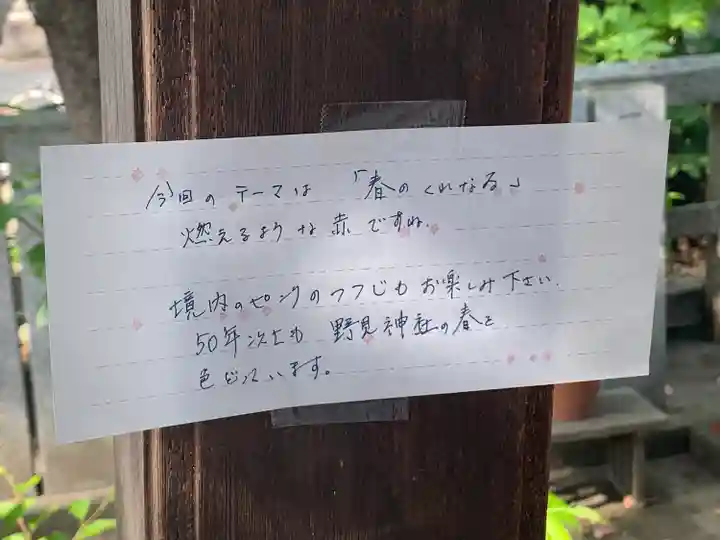 今回のテーマは 「春のくれなゐ」
燃えるような赤ですね。
境内のピンクのツツジもお楽しみ下さい。
50年次上も 野見神社の春を
色どっています。